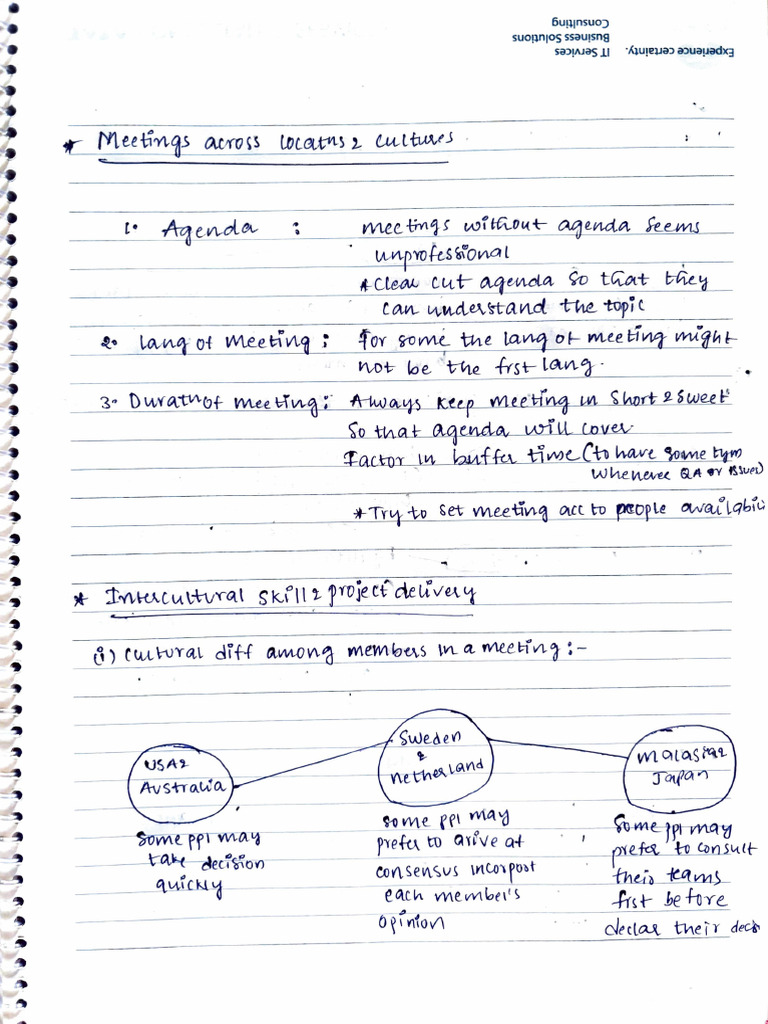 Experience certainty. IT Services
Business Solutions
Consulting
* Meetings across locatns & cultures
1. Agenda : meetings without agenda seems
unprofessional
* Clear cut agenda so that they
can understand the topic
2. Lang of meeting : For some the lang of meeting might
not be the frst lang.
3. Duratn of meeting : Always keep meeting in short & sweet
so that agenda will cover.
Factor in buffer time (to have some tym
whenever QA or issues)
* Try to set meeting acc to people availabi
* Intercultural skill & project delivery
(i) Cultural diff among members in a meeting :-
USA &
Australia
Some ppl may
take decision
quickly
Sweden
&
Netherland
some ppl may
prefer to arive at
consensus incorpost
each member's
opinion
Malasia &
Japan
Some ppl may
prefer to consult
their teams
frst before
declar their decis